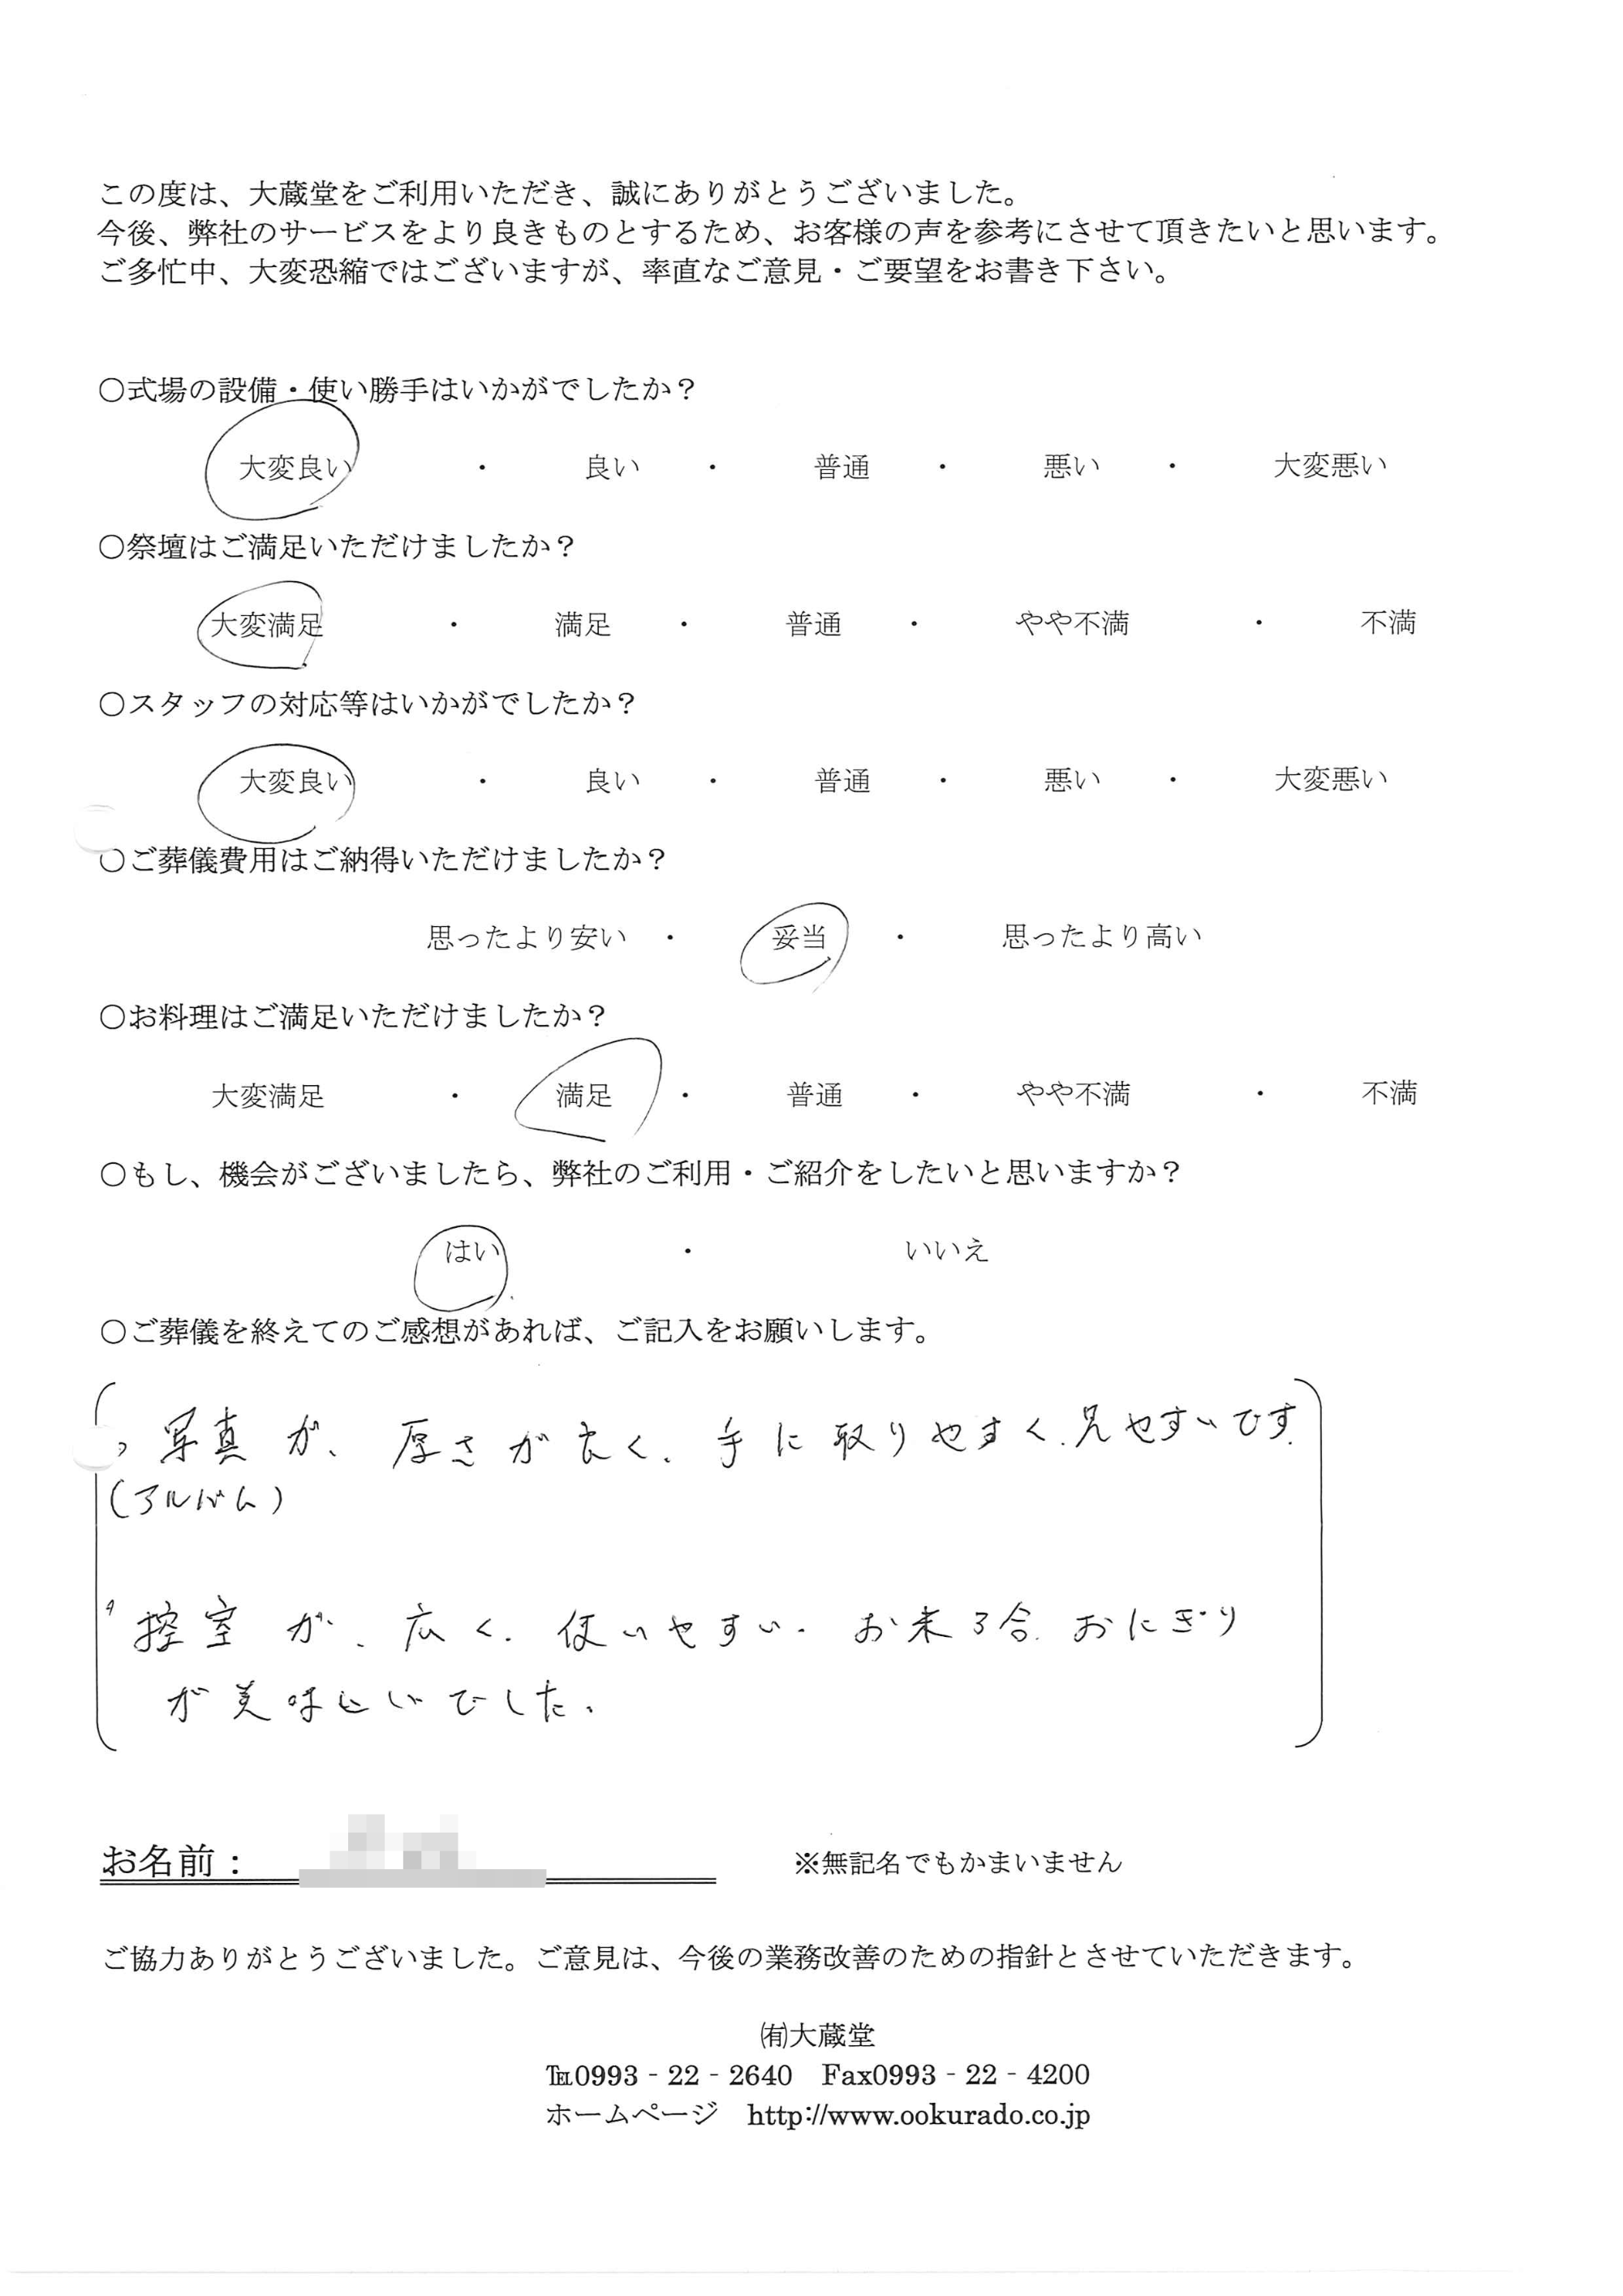 この度は、大蔵堂をご利用いただき、誠にありがとうございました。
今後、弊社のサービスをより良きものとするため、お客様の声を参考にさせて頂きたいと思います。
ご多忙中、大変恐縮ではございますが、率直なご意見・ご要望をお書き下さい。
○式場の設備・使い勝手はいかがでしたか？
大変良い ・ 良い ・ 普通 ・ 悪い ・ 大変悪い
○祭壇はご満足いただけましたか？
大変満足 ・ 満足 ・ 普通 ・ やや不満 ・ 不満
○スタッフの対応等はいかがでしたか？
大変良い ・ 良い ・ 普通 ・ 悪い ・ 大変悪い
○ご葬儀費用はご納得いただけましたか？
思ったより安い ・ 妥当 ・ 思ったより高い
○お料理はご満足いただけましたか？
大変満足 ・ 満足 ・ 普通 ・ やや不満 ・ 不満
○もし、機会がございましたら、弊社のご利用・ご紹介をしたいと思いますか？
はい ・ いいえ
○ご葬儀を終えてのご感想があれば、ご記入をお願いします。
写真が、厚さが良く、手に取りやすく、見やすいです。
（アルバム）
控室が、広く、使いやすい。お米3合、おにぎり
が美味しいでした。
お名前： ※無記名でもかまいません
ご協力ありがとうございました。ご意見は、今後の業務改善のための指針とさせていただきます。
㈲大蔵堂
℡0993‐22‐2640 Fax0993‐22‐4200
ホームページ http://www.ookurado.co.jp